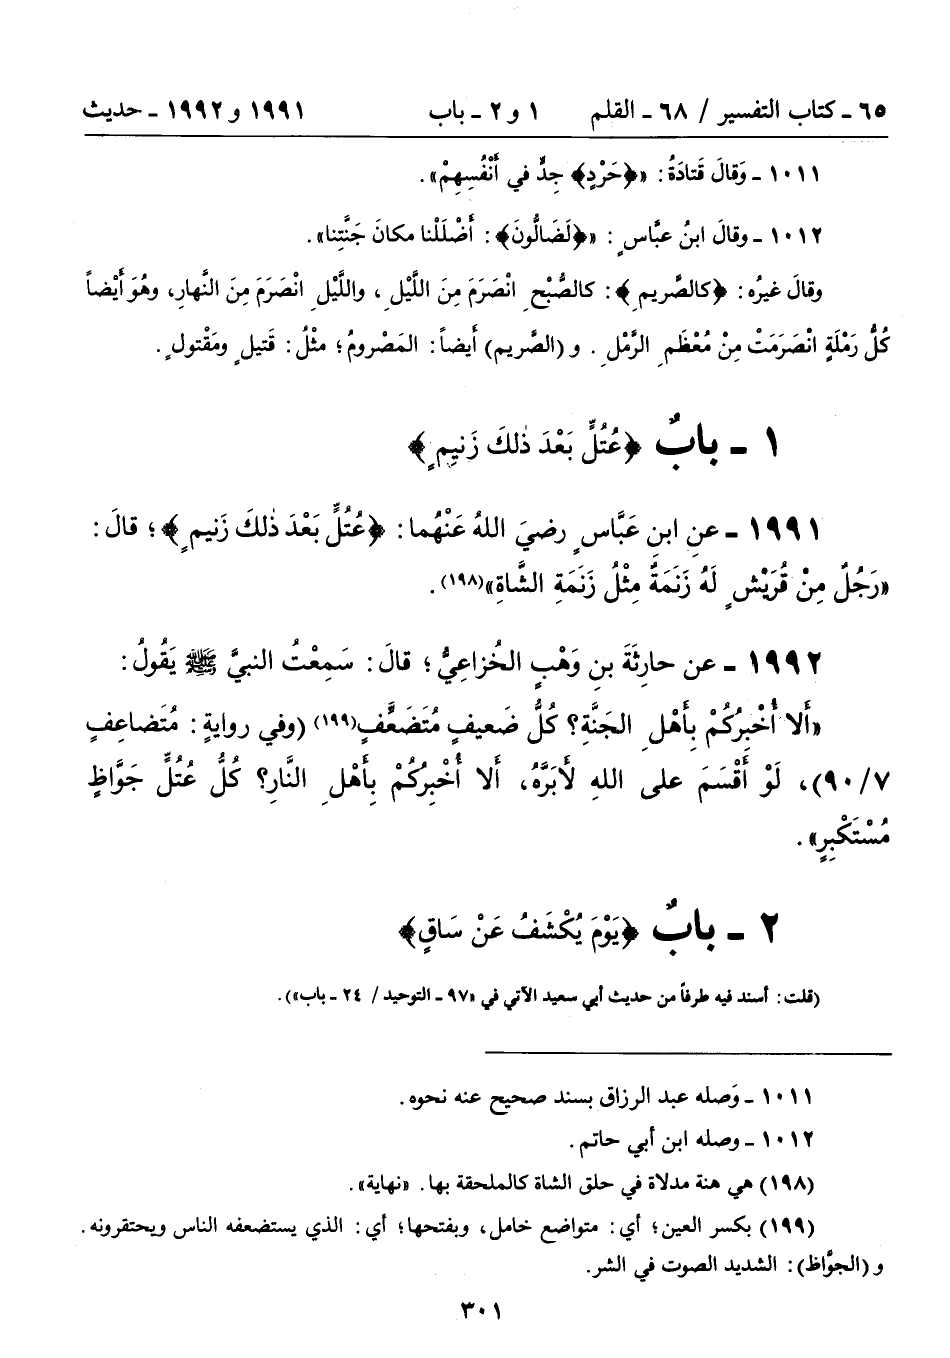 ٦٥ ـ كتاب التفسير / ٦٨ ـ القلم ١ و ٢ ـ باب ١٩٩١ و ١٩٩٢ ـ حديث
١٠١١ ـ وَقالَ قَتادَةُ: «﴿حَرْدٍ﴾ جِدٌّ في أَنْفُسِهِمْ».
١٠١٢ ـ وقالَ ابنُ عبَّاسٍ: «﴿لَضَالُّونَ﴾: أَضْلَلْنا مكانَ جَنَّتِنا».
وقالَ غيرُه: ﴿كالصَّريمِ﴾: كالصُّبْحِ انْصَرَمَ مِنَ اللَّيْلِ، واللَّيْلِ انْصَرَمَ مِنَ النَّهارِ، وهُوَ أَيْضاً
كُلُّ رَمْلَةٍ انْصَرَمَتْ مِنْ مُعْظَمِ الرَّمْلِ. و (الصَّريم) أَيضاً: المَصْرومُ؛ مثْلُ: قَتيلٍ ومَقْتولٍ.
١ ـ بابٌ ﴿عُتُلٍّ بَعْدَ ذٰلكَ زَنيمٍ﴾
١٩٩١ ـ عنِ ابنِ عَبَّاسٍ رضيَ اللهُ عَنْهُما: ﴿عُتُلٍّ بَعْدَ ذٰلكَ زَنيمٍ﴾؛ قالَ:
«رَجُلٌ مِنْ قُرَيْشٍ لَهُ زَنَمَةٌ مِثْلُ زَنَمَةِ الشَّاةِ»(١٩٨).
١٩٩٢ ـ عن حارِثَةَ بنِ وَهْبٍ الخُزاعِيُّ؛ قالَ: سَمِعْتُ النبيَّ ﷺ يَقُولُ:
«أَلا أُخْبِرُكُمْ بِأَهْلِ الجَنَّةِ؟ كُلُّ ضَعيفٍ مُتَضَعَّفٍ(١٩٩) (وفي روايةٍ: مُتَضاعِفٍ
٩٠/٧)، لَوْ أَقْسَمَ على اللهِ لأبَرَّهُ، أَلا أُخْبِرُكُمْ بِأَهْلِ النَّارِ؟ كُلُّ عُتُلٍّ جَوَّاظٍ
مُسْتَكْبِرٍ».
٢ ـ بابٌ ﴿يَوْمَ يُكْشَفُ عَنْ سَاقٍ﴾
(قلت: أسند فيه طرفاً من حديث أبي سعيد الآتي في «٩٧ ـ التوحيد/ ٢٤ ـ باب»).
١٠١١ ـ وَصله عبد الرزاق بسند صحيح عنه نحوه.
١٠١٢ ـ وصله ابن أبي حاتم.
(١٩٨) هي هنة مدلاة في حلق الشاة كالملحقة بها. «نهاية».
(١٩٩) بكسر العين؛ أي: متواضع خامل، وبفتحها؛ أي: الذي يستضعفه الناس ويحتقرونه.
و (الجوَّاظ): الشديد الصوت في الشر.
٣٠١